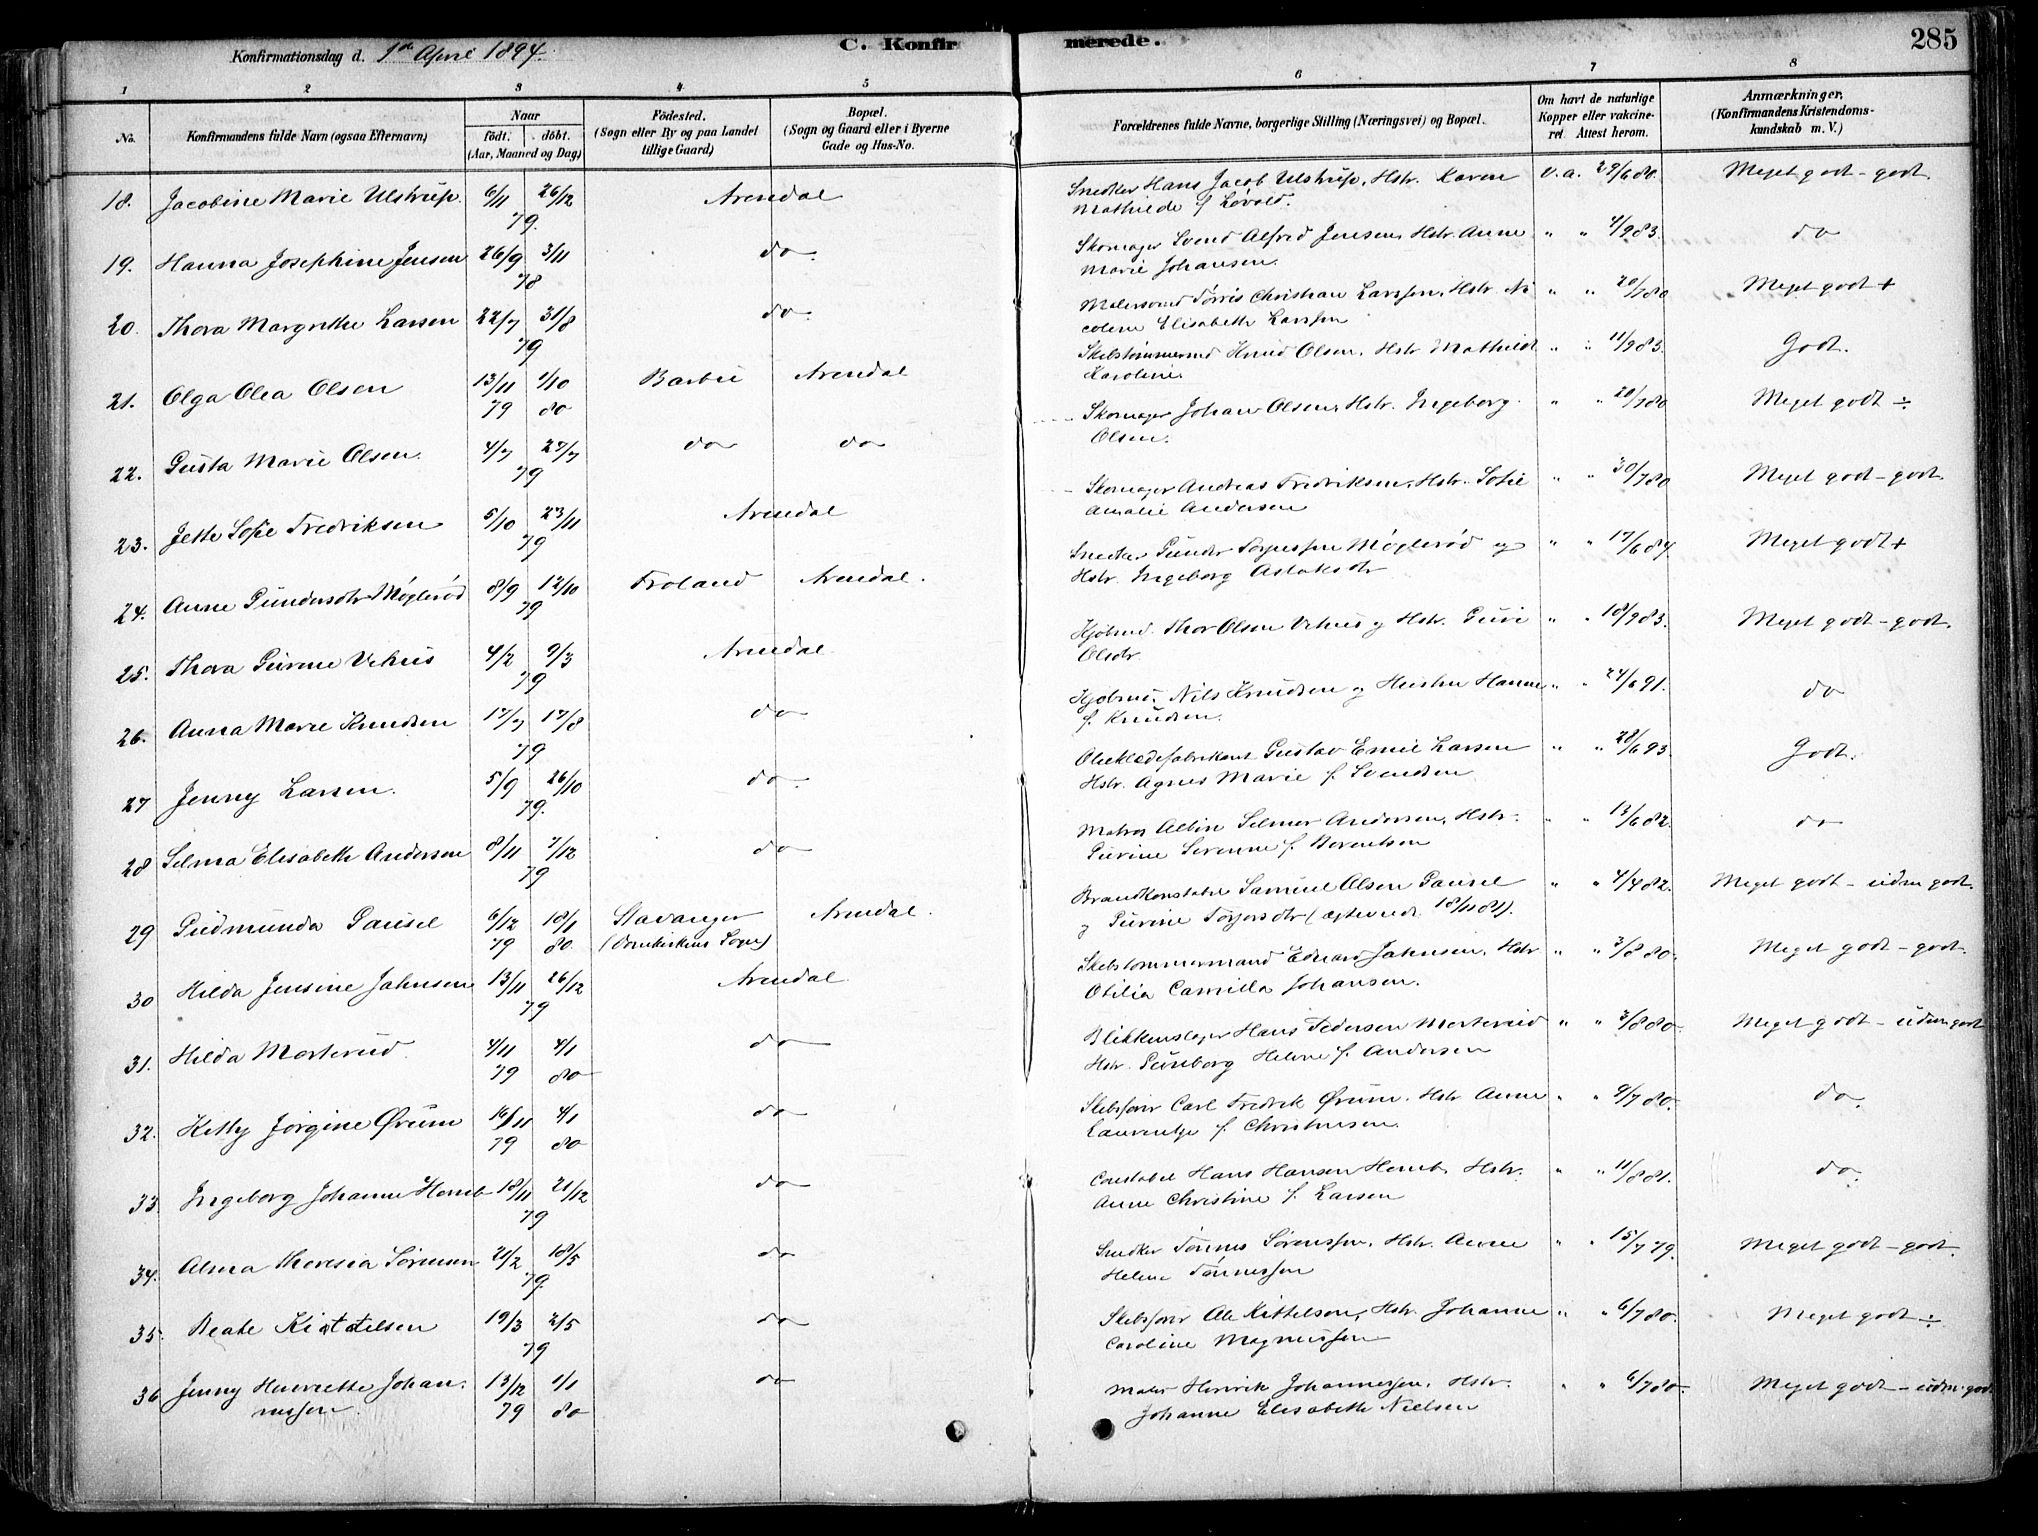 Konfirmationsdag d. 1ste April 1894. C. Konfirmerede. 285
1 2 3 4 5 6 7 8
No. Konfirmandens fulde Navn (ogsaa Efternavn) Naar født. døbt. (Aar, Maaned og Dag) Fødested. (Sogn eller By og paa Landet tillige Gaard) Bopæl. (Sogn og Gaard eller i Byerne Gade og Hus-No. Forældrenes fulde Navne, borgerlige Stilling (Næringsvei) og Bopæl. Om havt de naturlige Kopper eller vakcineret. Attest herom. Anmærkninger, (Konfirmandens Kristendomskundskab m. V.)
18. Jacobine Marie Ulstrup. 6/11 26/12 79. Arendal Snedker Hans Jacob Ulstrup, Hstr. Karen v.a. 29/6 80. Meget godt - godt.
Mathilde f. Løvold.
19. Hanna Josephine Jensen 26/9 3/11 78 do. Skomager Svend Alfred Jensen, Hstr. Anne " " 4/9 83. do
Marie Johansen.
20. Thora Margrethe Larsen 22/7 31/8 79 do. Malersvend Tørris Christian Larssen, Hstr. Ni " " 20/7 80 Meget godt +
coline Elisabeth Larssen
21. Olga Olea Olsen 13/11 79 1/10 80 Barbu Arendal Skibstømmermd Knud Olsen, Hstr Mathilde " " 11/9 83. Godt.
Karoline.
22. Gusta Marie Olsen. 4/7 27/7 79 do do Skomager Johan Olsen, Hstr. Ingeborg " " 20/7 80 Meget godt ÷
Olsen.
23. Jette Sofie Fredriksen 5/10 23/11 79 Arendal Skomager Andreas Fredriksen, Hstr. Sofie " " 30/7 80 Meget godt - godt.
Amalie Andersen
24. Anne Gundersdtr Møglerød 8/9 12/10 79 Froland Arendal. Snedker Gunder Torjussen Møglerød og " " 17/6 84. Meget godt +
Hstr. Ingeborg Aslaksdtr
25. Thora Gurine Vehus 4/2 9/3 79 Arendal. Kjøbmd. Thor Olsen Vehus og Hstr. Guri " " 18/9 83. Meget godt - godt.
Olsdtr.
26. Anna Marie Knudsen 17/7 17/8 79 do Kjøbmd. Nils Knudsen og Hustru Hanne " " 24/6 91. do
f. Knudsen.
27 Jenny Larsen. 5/9 26/10 79. do. Olieklædefabrikant Gustav Emil Larsen " " 28/6 93. Godt.
Hstr. Agnes Marie f. Svendsen
28 Selma Elisabeth Andersen 8/11 7/12 79 do Matros Albin Selmer Andersen, Hstr. " " 13/6 82. do
Gurine Serenne f. Berentsen
29 Gudmunda Gausel 6/12 79 18/1 80. Stavanger (Domkirkens Sogn) Arendal. Brandkonstabel Samuel Olsen Gausel " " 4/4 82. Meget godt - udm. godt.
og Gurine Torjersdtr (ægteviede 18/11 81).
30 Hilda Jensine Jahnsen 13/11 26/12 79 Arendal Skibstømmermand Edvard Jahnsen, Hstr " " 3/8 80. Meget godt - godt.
Otilia Camilla Johansen.
31. Hilda Morterud. 4/11 79 4/1 80 do Blikkenslager Hans Pedersen Morterud " " 3/8 80. Meget godt - udm. godt
Hstr. Gunborg Helene f. Andersen
32. Kitty Jørgine Ørum 16/11 79 4/1 80 do Skibsfører Carl Fredrik Ørum, Hstr Anne " " 9/7 80. do.
Laurentze f. Christensen.
33 Ingeborg Johanne Hornb 18/11 21/12 79 do Constabel Hans Hansen Hornb, Hstr. " " 11/8 81. do.
Anne Christine f. Larsen
34. Alma Theresia Sørensen 21/2 18/5 79. do Snedker Tønnes Sørenssen, Hstr. Anne " " 15/7 79. Meget godt - godt.
Helene Tønnessen
35. Beate Kittelsen 19/3 2/5 79 do Skibsfører Ole Kittelsen, Hstr. Johanne " " 6/7 80. Meget godt ÷
Caroline Magnussen
36 Jenny Henriette Johannessen. 13/12 79 1/1 80 do Maler Henrik Johannessen, Hstr. " " 6/7 80. Meget godt - udm. godt
Johanne Elisabeth Nielsen